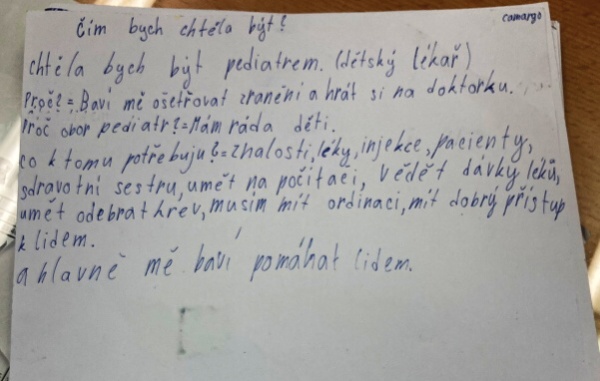 Čím bych chtěla být?
camargo
chtěla bych být pediatrem. (dětský lékař)
Proč? = Baví mě ošetřovat zranění a hrát si na doktorku.
Proč obor pediatr? = Mám ráda děti.
co k tomu potřebuju? = znalosti, léky, injekce, pacienty,
zdravotní sestru, umět na počítaci, vědět dávky léků,
umět odebrat krev, musím mít ordinaci, mít dobrý přístup
k lidem.
a hlavně mě baví pomáhat lidem.